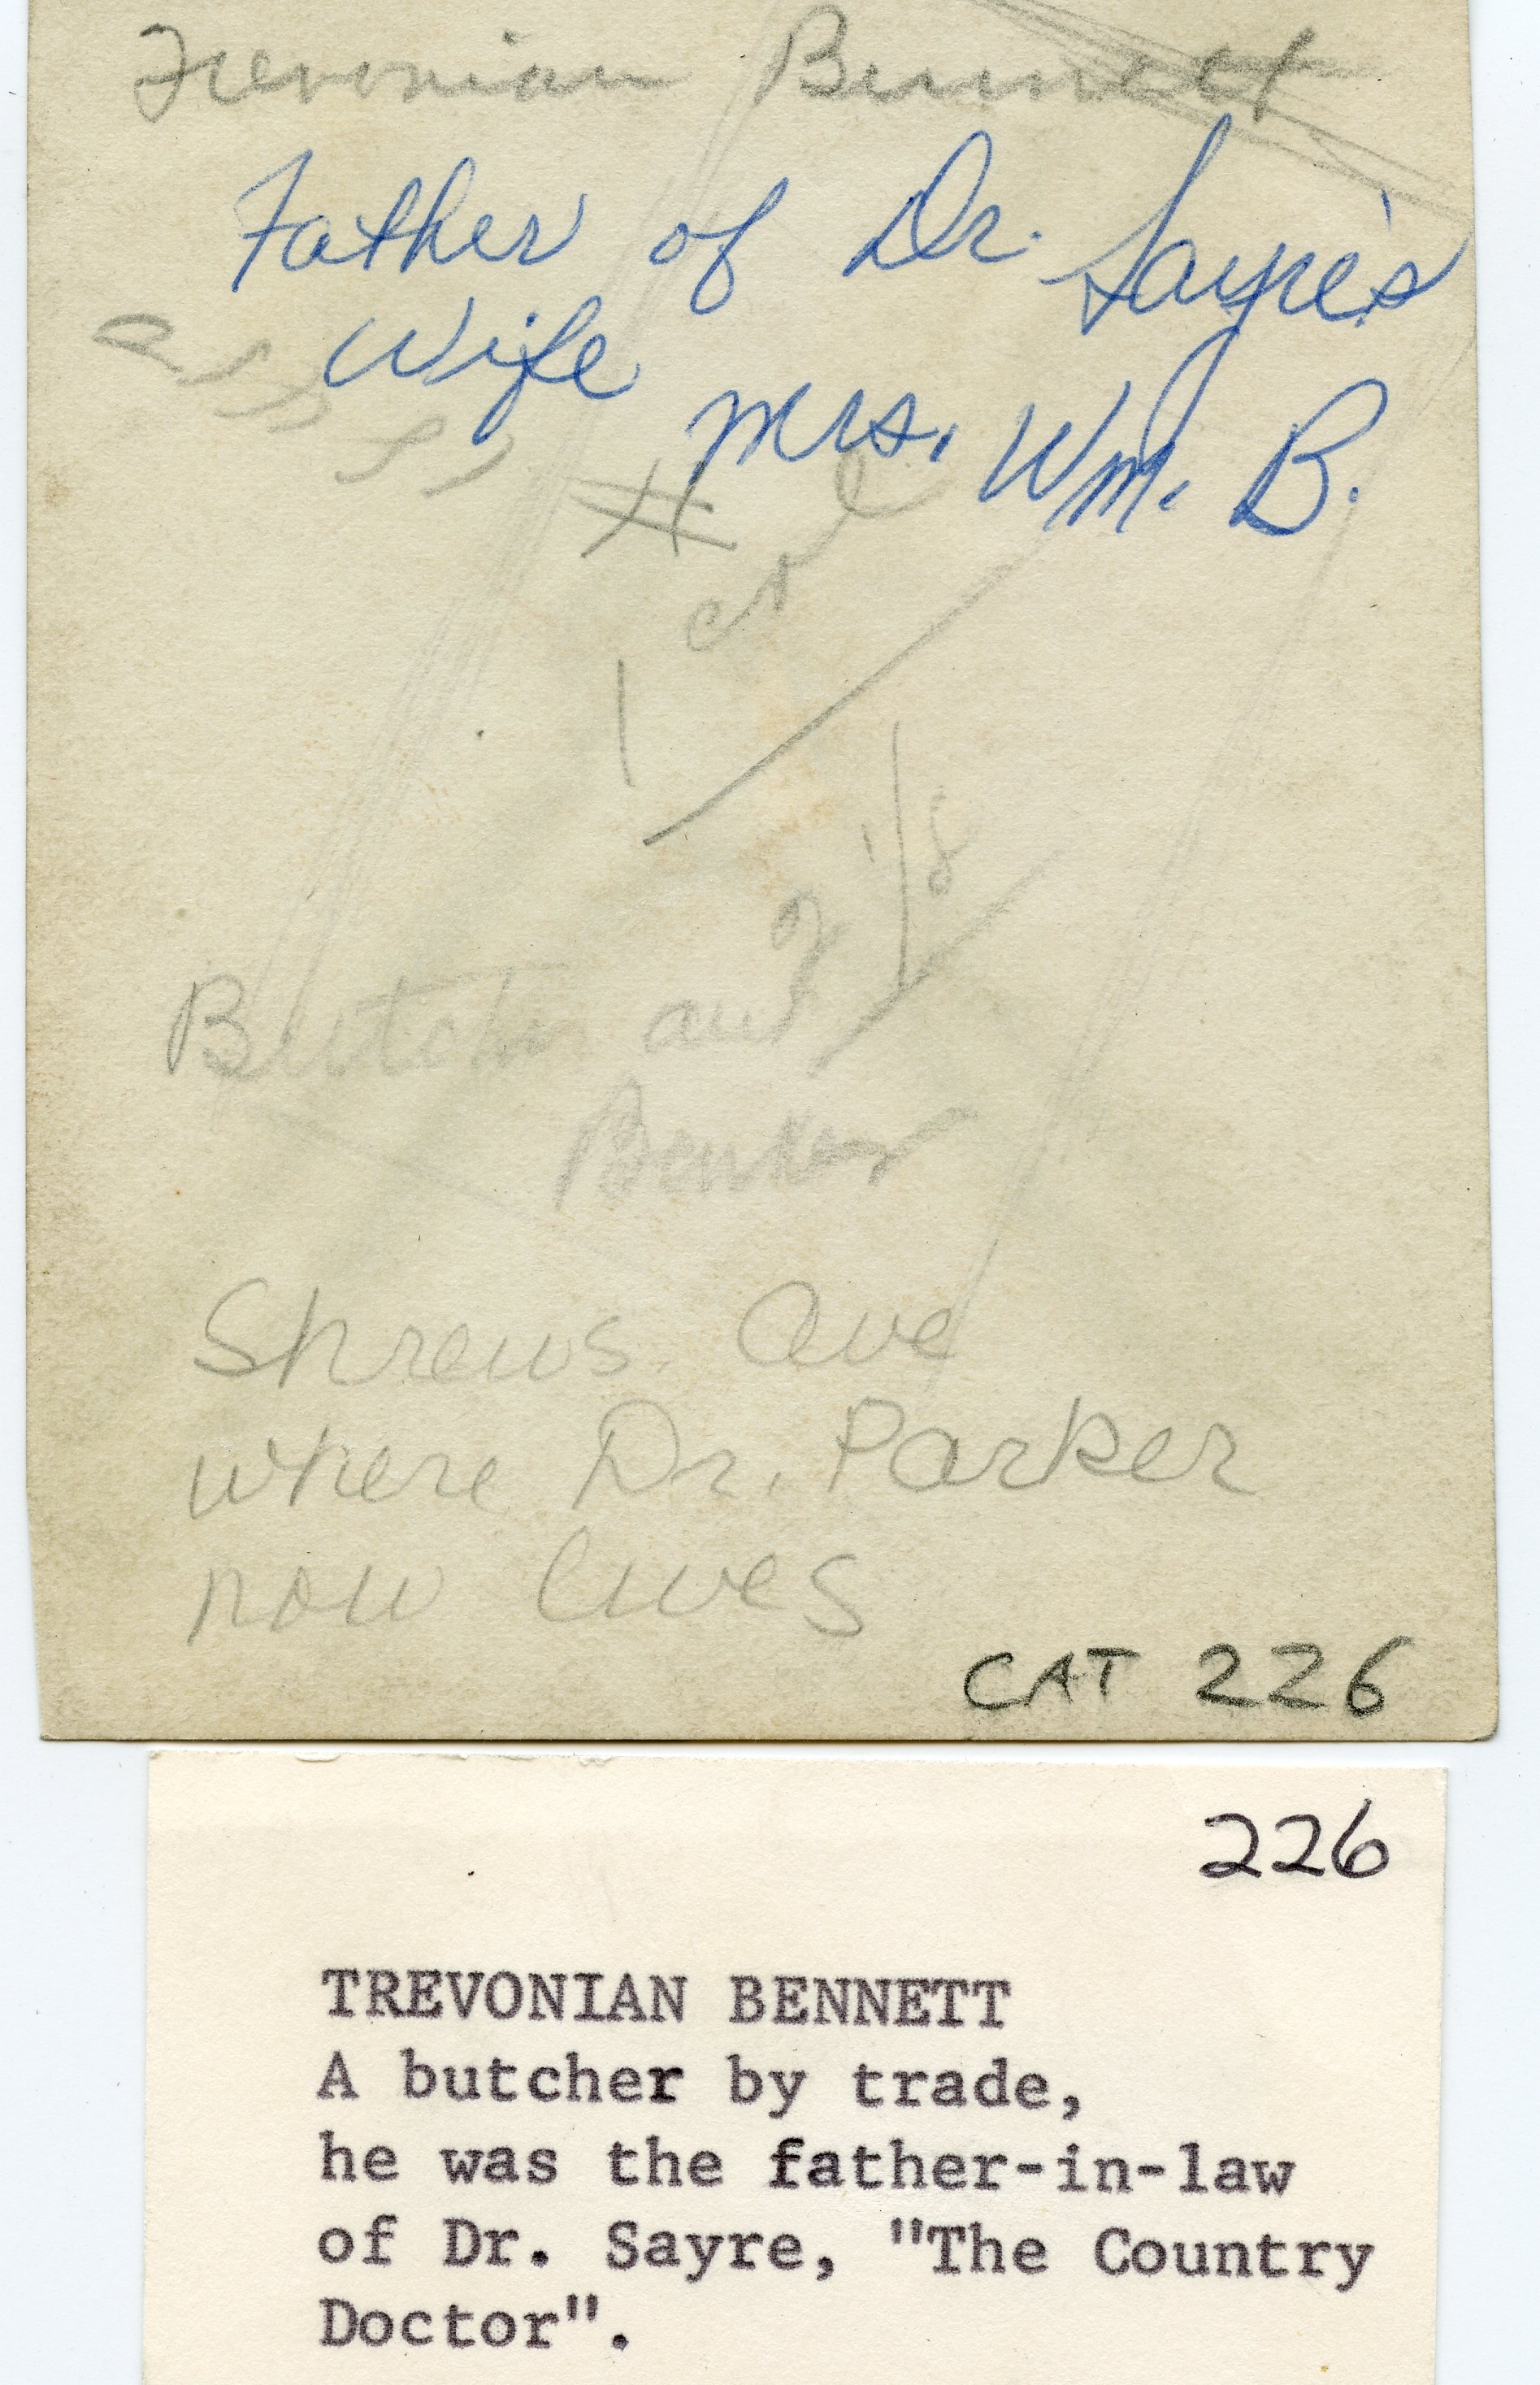 Trevonian Bennett
Father of Dr. Sayre's
Wife
Mrs. Wm. B.
1 col
2 1/8
Butcher and
Shrews. Ave
where Dr. Parker
now lives
CAT 226
226
TREVONIAN BENNETT
A butcher by trade,
he was the father-in-law
of Dr. Sayre, "The Country
Doctor".